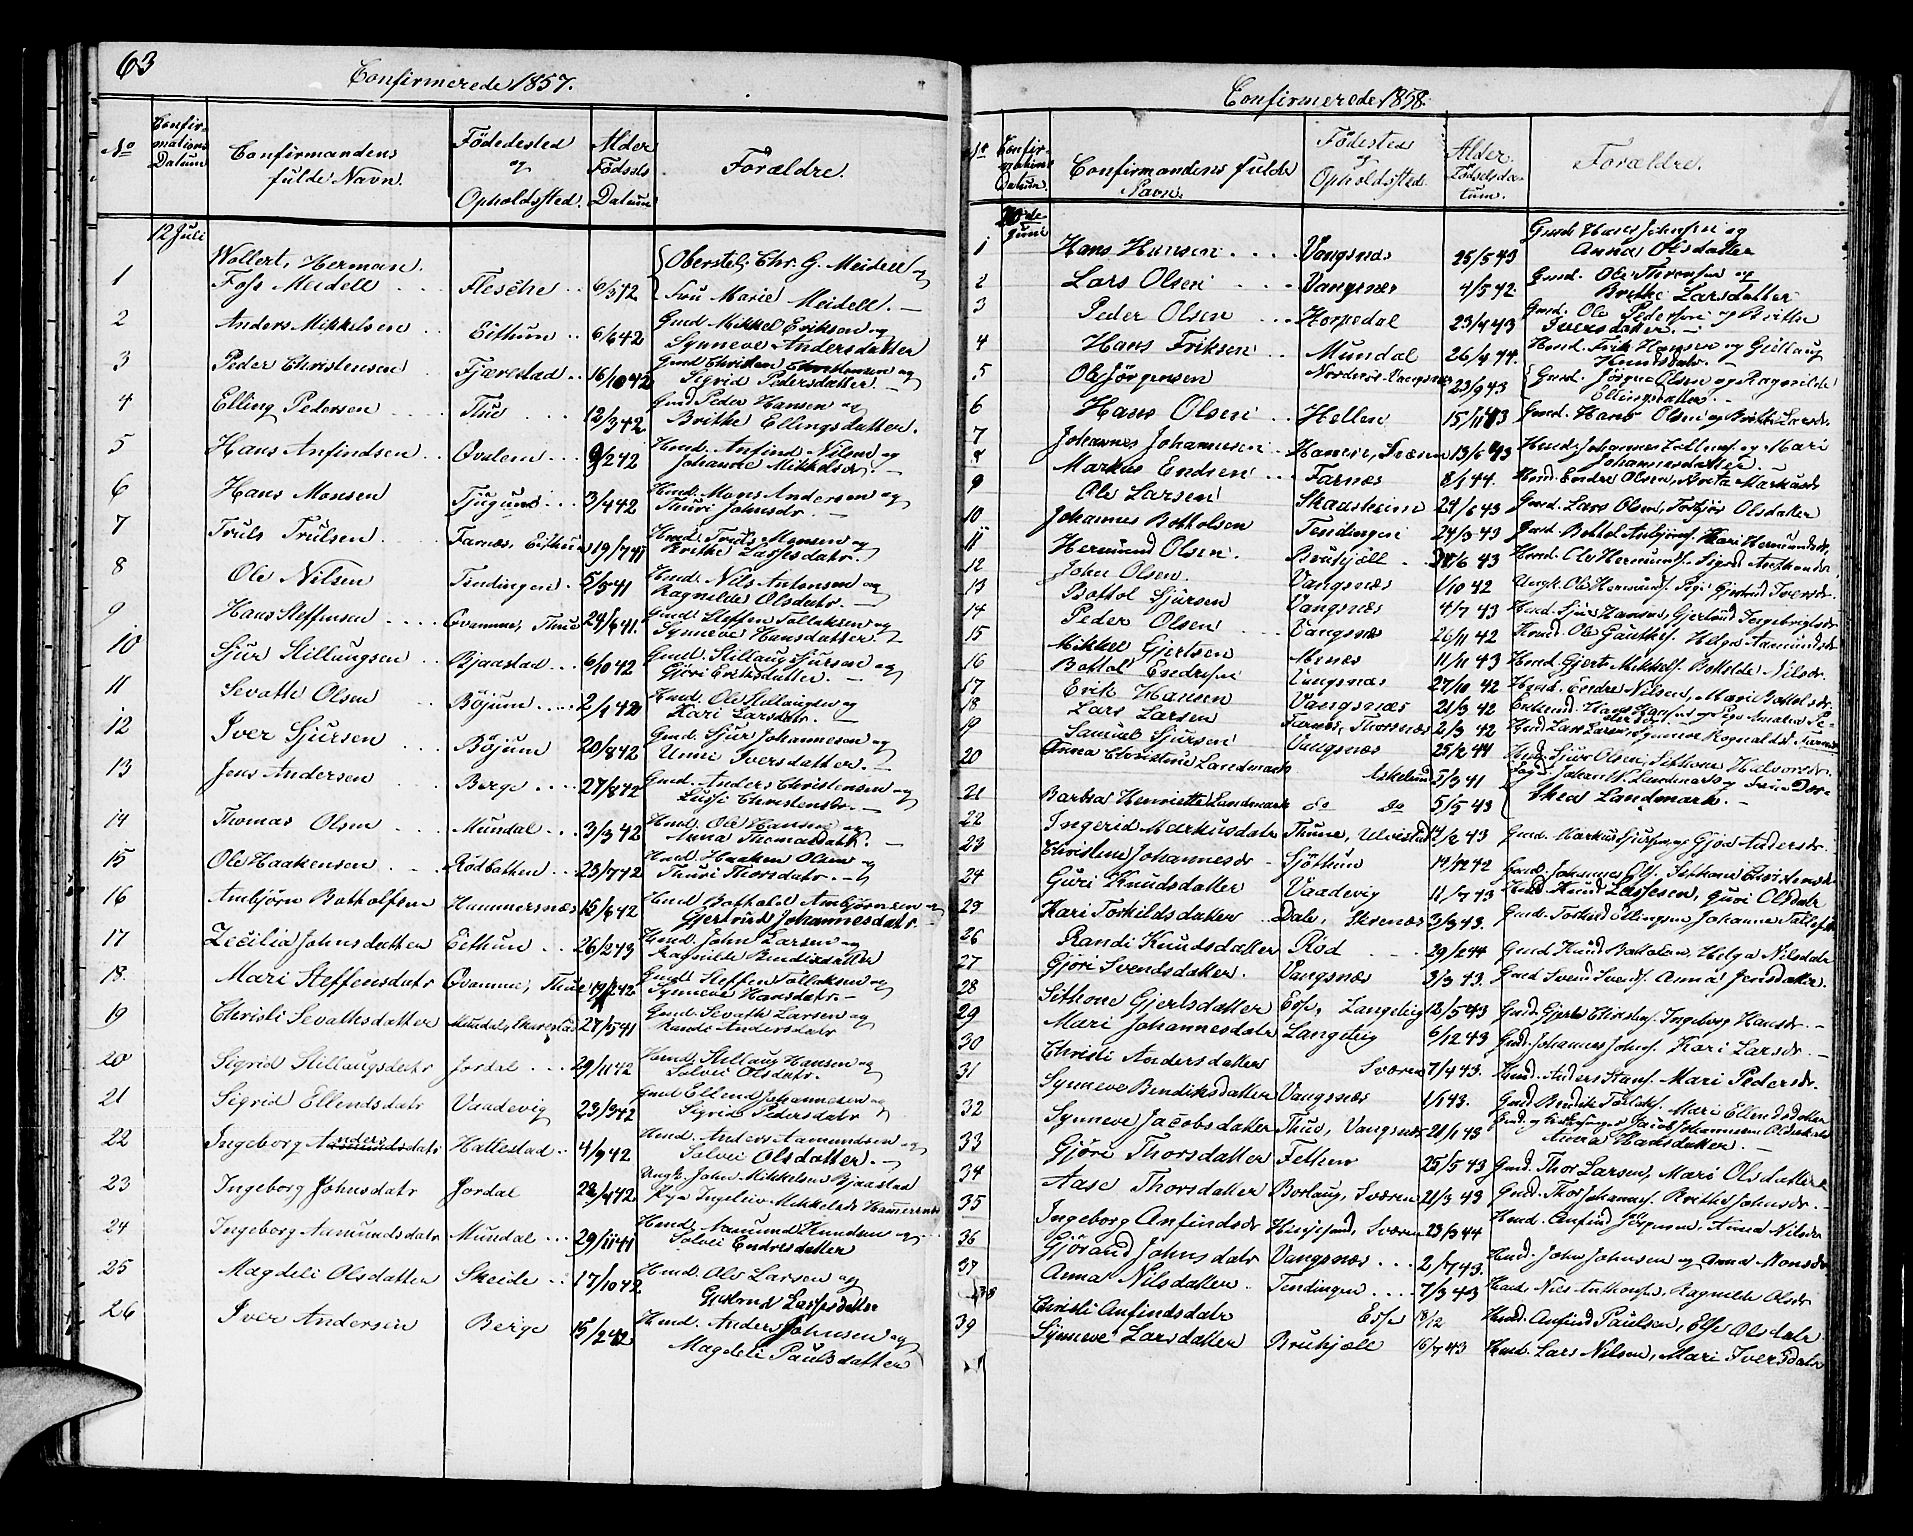 63
Confirmerede 1857.
No Confirmations Datum Confirmandens fulde Navn. Födedested og Opholdssted. Alder Födsels Datum Forældre.
12 Juli
Wollert, Herman. {Oberstelj: Chr. G. Meidell og
1 Foss Meidell Flesche 6/5 42 Fru Marie Meidell.
2 Anders Mikkelsen Eithun 6/6 42 Gmd Mikkel Eriksen og
Synneve Andersdatter
3 Peder Christensen Tjærestad 16/10 42 Gmd Christen Christensen og
Sigrid Pedersdatter.
4 Elling Pedersen Thue 12/3 42 Gmd Peder Hansen og
Brithe Ellingsdatter.
5 Hans Anfindsen Qvalem 9/2 42 Hmd. Anfind Nilsen og
Johanne Mikkelsdr.
6 Hans Monsen Tjugum 3/4 42 Hmd. Mons Andersen og
Thuri Johnsdr.
7 Truls Trulsen Farnæs, Eithun 19/7 41 Hmd. Truls Monsen og
Brithe Lassesdatr.
8 Ole Nilsen Tendingen 5/5 41 Hmd. Nils Antonsen og
Ragnilde Olsdatr.
9 Hans Steffensen Qvamme, Thue 29/6 41. Gmd. Steffen Tollaksen og
Synneve Hansdatter
10 Sjur Stillaugsen Bjaastad 6/10 42 Gmd. Stillaug Sjursen og
Gjöri Eriksdatter.
11 Sevath Olsen Böjum 2/1 42 Hmd. Ole Stillaugsen og
Kari Larsdatr.
12 Iver Sjursen Böjum 20/8 42 Gmd. Sjur Johannesen og
Unni Iversdatter.
13 Jens Andersen Berge 27/8 42 Gmd. Anders Christensen og
Lussi Christensdr.
14 Thomas Olsen Mundal 3/3 42 Hmd. Ole Hansen og
Anna Thomasdatr.
15 Ole Haakensen Rödbatten 23/7 42 Hmd. Haaken Olsen og
Thuri Thorsdatr.
16 Ambjörn Botholfsen Hammersnæs 15/6 42 Hmd Bothold Ambjörnsen og
Gjertrud Johannesdatr.
17 Zecilia Johnsdatter Eithun 26/2 43 Hmd. John Larsen og
Ragnilde Bendiksdatter
18 Mari Steffensdatr Qvamme, Thue 19/2 42 Gmd. Steffen Tollaksen og
Synneve Hansdatr.
19 Christi Sevathsdatter Mundal, 27/5 41 Gmd. Sevath Larsen og
Randi Andersdatr
20 Sigrid Stillaugsdatr Jordal 29/11 42 Hmd. Stillaug Hansen og
Solvei Olsdatr.
21 Sigrid Ellendsdatr Vaadevig 23/3 42 Gmd Ellend Johannesen og
Sigrid Pedersdatr
22 Ingeborg Andersdatr Hallestad 4/9 42 Hmd. Anders Aamundsen og
Solvei Olsdatter.
23 Ingeborg Johnsdatr Jordal 28/4 42. Ungk. John Mikkelsen Bjaastad
Pige Ingeleiv Mikkelsdr Hamersnæs
24 Ingeborg Aamundsdatr Mundal 29/11 41 Hmd. Aamund Knudsen og
Solvei Endresdatter
25 Magdeli Olsdatter Skeide 17/10 42 Hmd. Ole Larsen og
Gjertrud Lassesdatter
26 Iver Andersen Berge 15/2 42 Hmd. Anders Johnsen og
Magdeli Paulsdatter
Confirmerede 1858.
No Confirmations Datum. Confirmandens fulde Navn. Födested og Opholdssted. Alder. Födselsdatum. Forældre.
20de Juni
1 Hans Hansen Vangsnæs 25/5 43 Gmd Hans Johnsen og
Anna Olsdatter
2 Lars Olsen Vangsnæs 4/5 42 Gmd. Ole Iversen og
Brithe Larsdatter
3 Peder Olsen Horpedal 23/4 43 Gmd. Ole Pedersen og Brithe
Iversdatter.
4 Hans Eriksen Mundal 26/4 44. Hmd. Erik Hansen og Gjellaug
Knudsdatr.
5 Ole Jörgensen Nordenes Vangsnæs 23/9 43 {Gmd. Jörgen Olsen og Ragnilde
Ellingsdatter.
6 Hans Olsen Hellen 15/11 43 Gmd. Hans Olsen og Brithe Larsdr.
7 Johannes Johannesen Hamre, Sværen 13/6 43 Hmd. Johannes og Mari
Johannesdatter.
8 Markus Endsen Farnæs 8/1 44. Hmd. Endre Olsen, Brita Markusdr
9 Ole Larsen Skaasheim 24/6 43 Gmd. Lars Olsen, Torbjör Olsdatter
10 Johannes Botholsen Tendingen 24/3 43 Gmd. Bothol Ambjörnsen, Kari Hermundsdr.
11 Hermund Olsen. Bruhjell 6 43 Hmd. Ole Hermunds. Sigrid
12 John Olsen. Vangsnæs 1/10 42 Ungk. Ole Hermunds. Pige Gjertrud Iversdr.
13 Bottol Sjursen Vangsnæs 4/7 43 Hmd. Sjur Hansen, Gjertrud Ingebrigtsdr
14 Peder Olsen Vangsnæs 26/11 42 Hmd. Ole Helga Aamundsdr
15 Mikkel Gjertsen Menæs 11/11 43 Hmd. Gjert Mikkels. Botilde Nilsdr.
16 Bottol Endresen Vangsnæs 27/10 42 Hmd. Endre Nilsen, Mari Botholsdr.
17 Erik Hansen Vangsnæs 21/3 42 Enkemd. Hans Hansen og Pige
18 Lars Larsen Farnæs, Thorsnæs 2/3 42 Hmd Lars Larsen, Synneve Ragnaldsdr.
19 Samuel Sjursen Vangsnæs 25/2 44 Hmd. Sjur Olsen, Sithom Halvorsdr.
20 Anna Christine Landmark Askelund 5/3 41 Fogd Johan N. Landmark og Frue
21 Barbra Henriette Landmark do do 5/5 43 Thea Landmark.
22 Ingerid Markusdatr Thune, Ulvestad 14/2 43 Gmd. Markus Sjursen og Gjöa Andersdr.
23 Christine Johannesdr Sjöthun 14/12 42 Gmd. Johannes Sithom Christensdr
24 Guri Knudsdatter Vaadevig 11/7 43 Hmd. Knud Lassesen, Guri Olsdatr
25 Kari Torkildsdatter Dale, Skrenæs 3/3 43. Gmd. Torkild Ellingsen, Johanne
26 Randi Knudsdatter Röd 29/2 44 Gmd Knud Botholsen, Helga Nilsdatr
27 Gjöri Svendsdatter. Vangsnæs 3/3 43. Gmd Svend Svends. Anna Jensdatter.
28 Sithom Gjertsdatter Ese, Langeteig 12/5 43 Gmd. Gjert Christens. Ingeborg Hansdr.
29 Mari Johannesdatr Langeteig 6/12 43 Gmd. Johannes Johns. Kari Larsdr.
30 Christi Andersdatter Sværen 7/4 43. Hmd. Anders Hans. Mari Pedersdr.
31 Synneve Bendiksdatter Vangsnæs 1/1 43. Gmd Bendik Torlaks. Mari Ellendsdatter
32 Synneve Jacobsdatter Thue, Vangsnæs 21/1 43 Gmd. og Kirkesanger Jacob Johannesen
Anna Hansdatter.
33 Gjöri Thorsdatter Fethun 25/5 43 Gmd. Thor Larsen, Mari Olsdatter
34 Aase Thorsdatter Borlaug, Sværen 21/3 43 Gmd. Thor Johannes. Brithe Johnsdr.
35 Ingeborg Anfindsdr Sværen 23/3 44 Hmd. Anfind Jörgensen, Anna Nilsdr
36 Gjöraud Johnsdatr Vangsnæs 2/7 43. Hmd. John Johnsen og Anna Monsdr
37 Anna Nilsdatter. Tendingen 7/3 43 Hmd. Nils Anthons. Ragnilde Olsdr
38 Christi Anfindsdatr Ese 18/12 Hmd. Anfind Paulsen, Else Olsdatr
39 Synneve Larsdatter Bruhjell 16/7 43 Hmd. Lars Nilsen, Mari Iversdatr